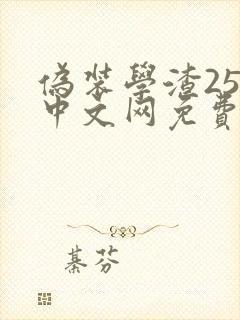 偽裝學渣25
中文网免費
綦芬